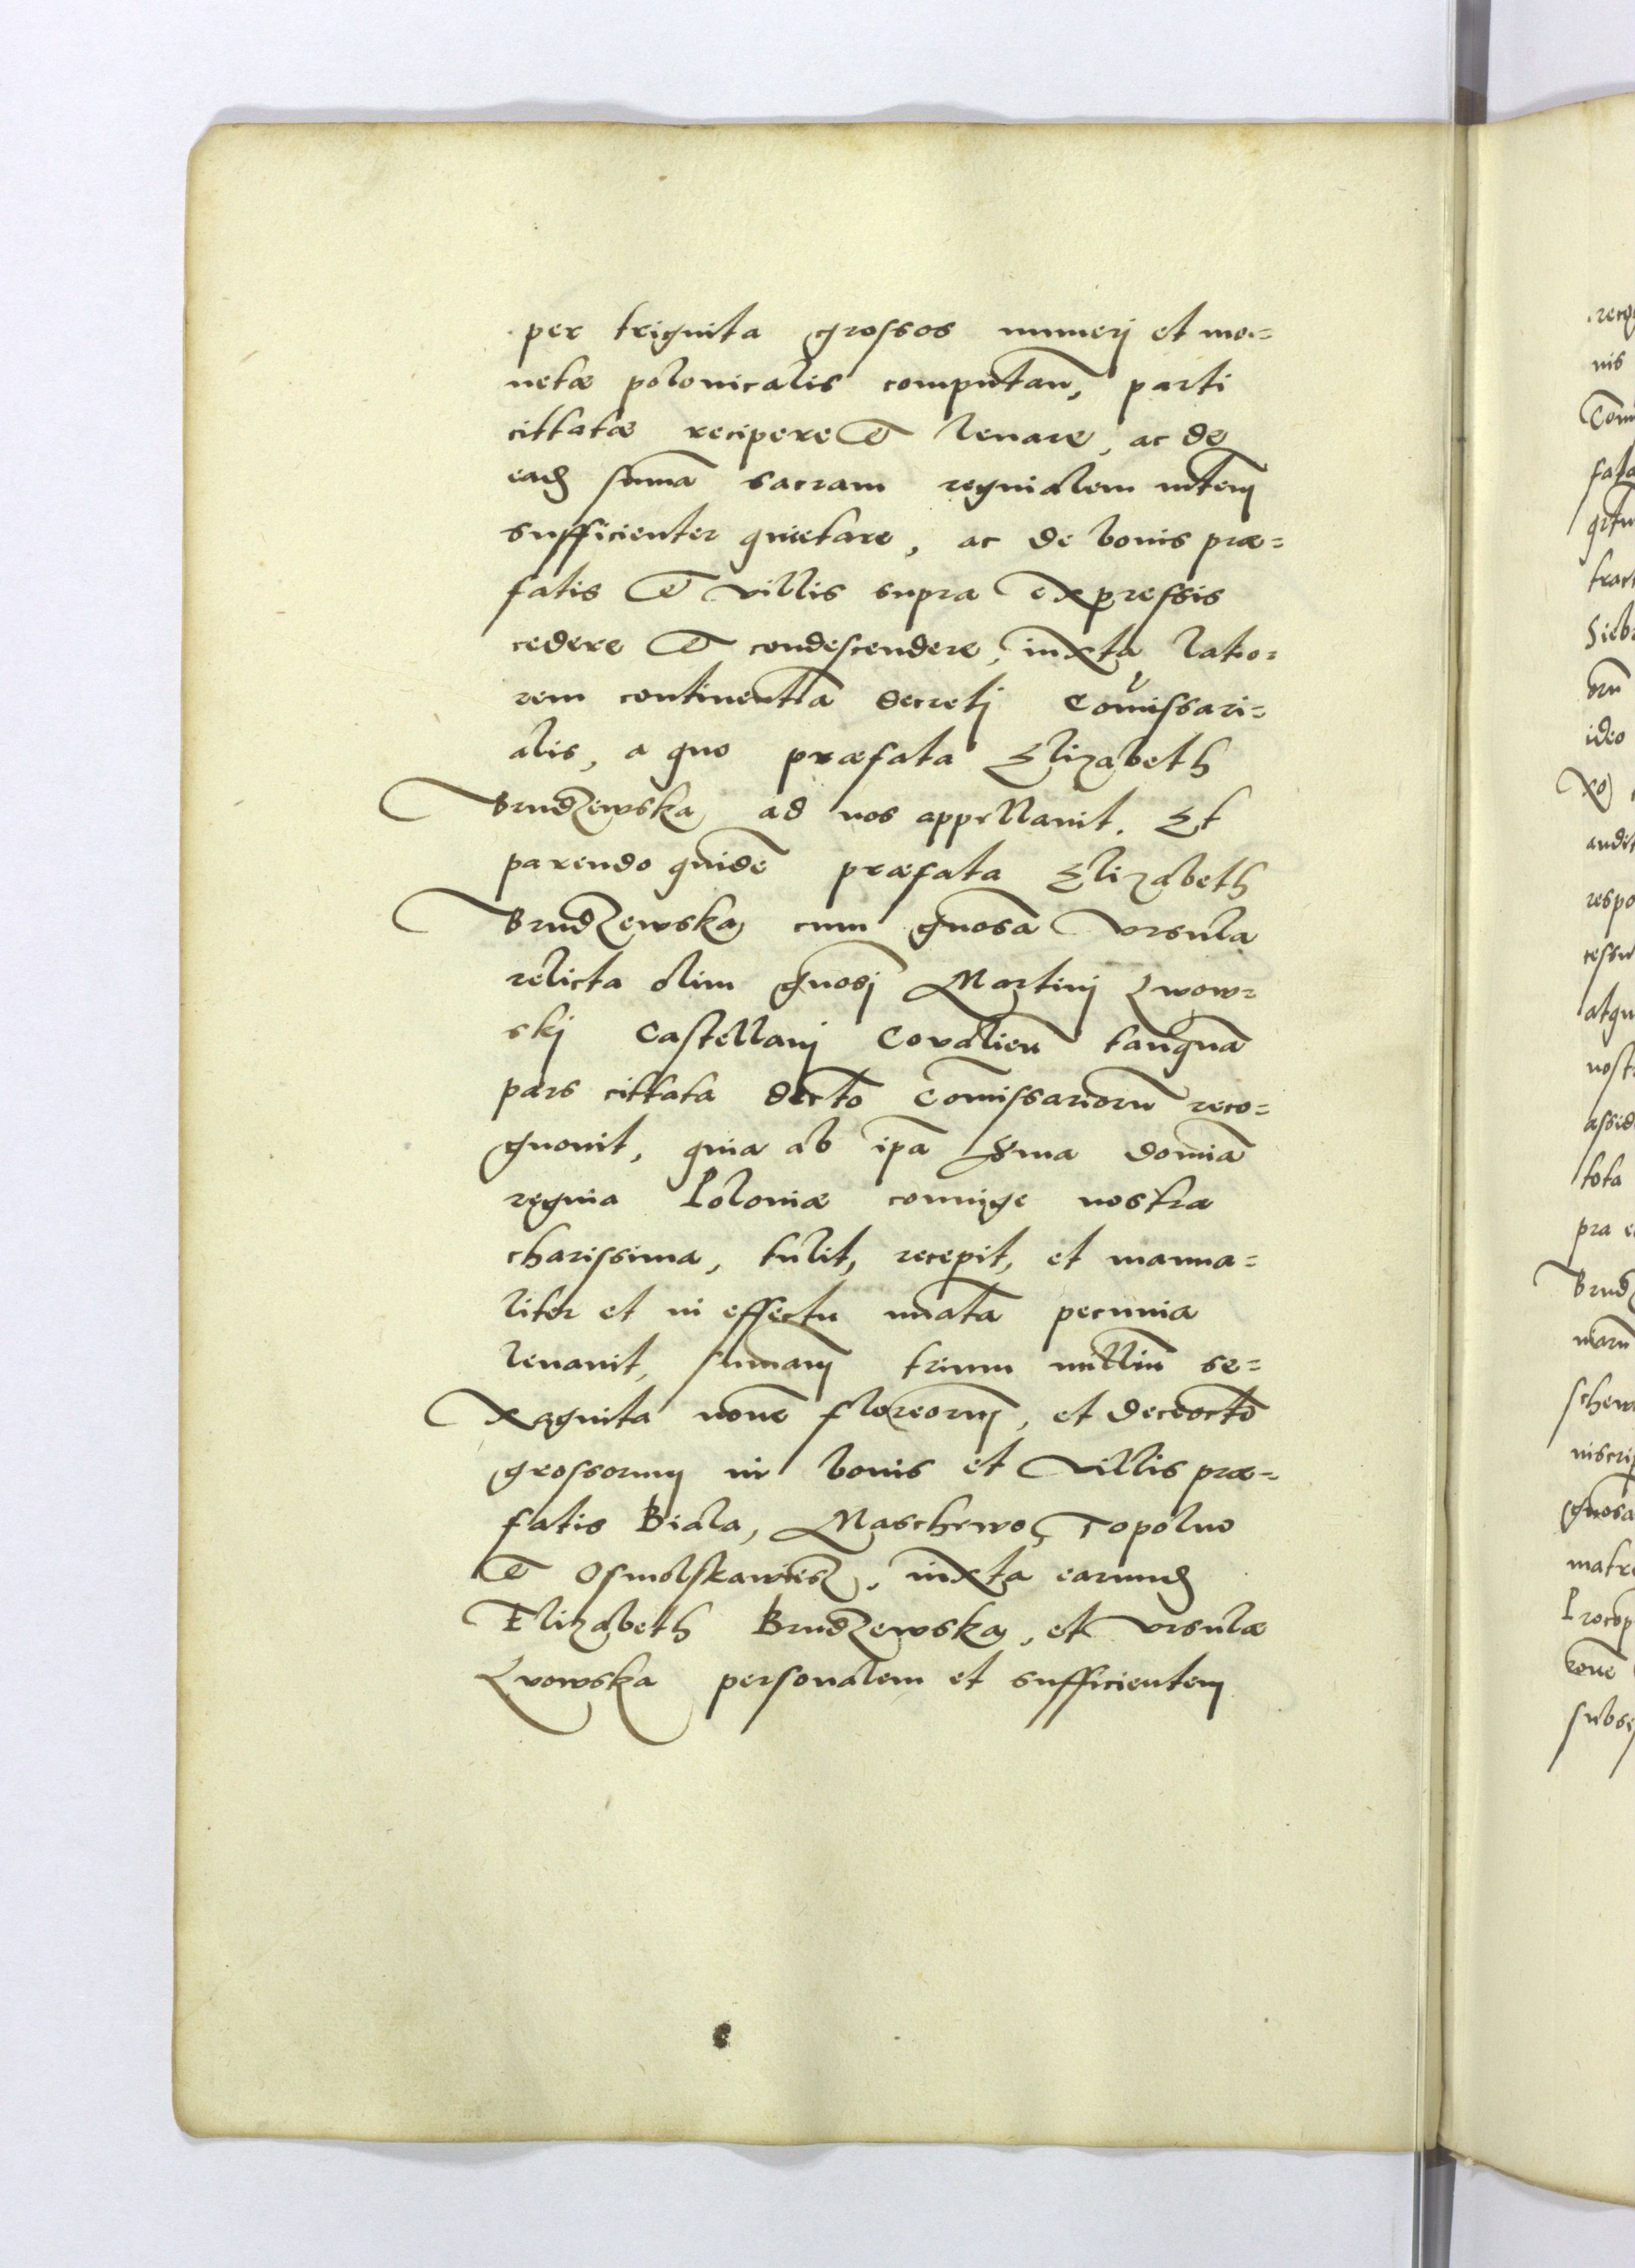 per triginta grossos numerj et mo=
netæ polonicalis computan, parti
cittatæ recipere et leuare, ac de
eadem sũma sacram reginalem mtem
sufficienter quietare, ac de bonis præ=
fatis et villis supra expressis
cedere et condescendere, iuxta latio=
rem continentiã decretj Com̃issari=
alis, a quo præfata Elizabeth
Brudzewska ad nos appellauit. Et
parendo quidẽ præfata Elizabeth
Brudzewska cum gñosa Vrsula
relicta olim gñosj Martinj Lwow=
skj Castellanj Coualieñ tanquã
pars cittata decto Com̃issariorũ reco=
gnouit, quia ab ip̃a Sma domiã
regina Poloniæ coniuge nostra
charissima, tulit, recepit, et manua=
liter et in effectu nũata pecunia
leuauit, sum̃am trium milliũ se=
xaginta nouẽ florenorum, et deceoctõ
grossorum in bonis et villis præ=
fatis Biala, Maschewo, Topolno
et Osmolskawiesz, iuxta earundem
Elizabeth Brudzewska, et Vrsulæ
Lvowska personalem et sufficientem